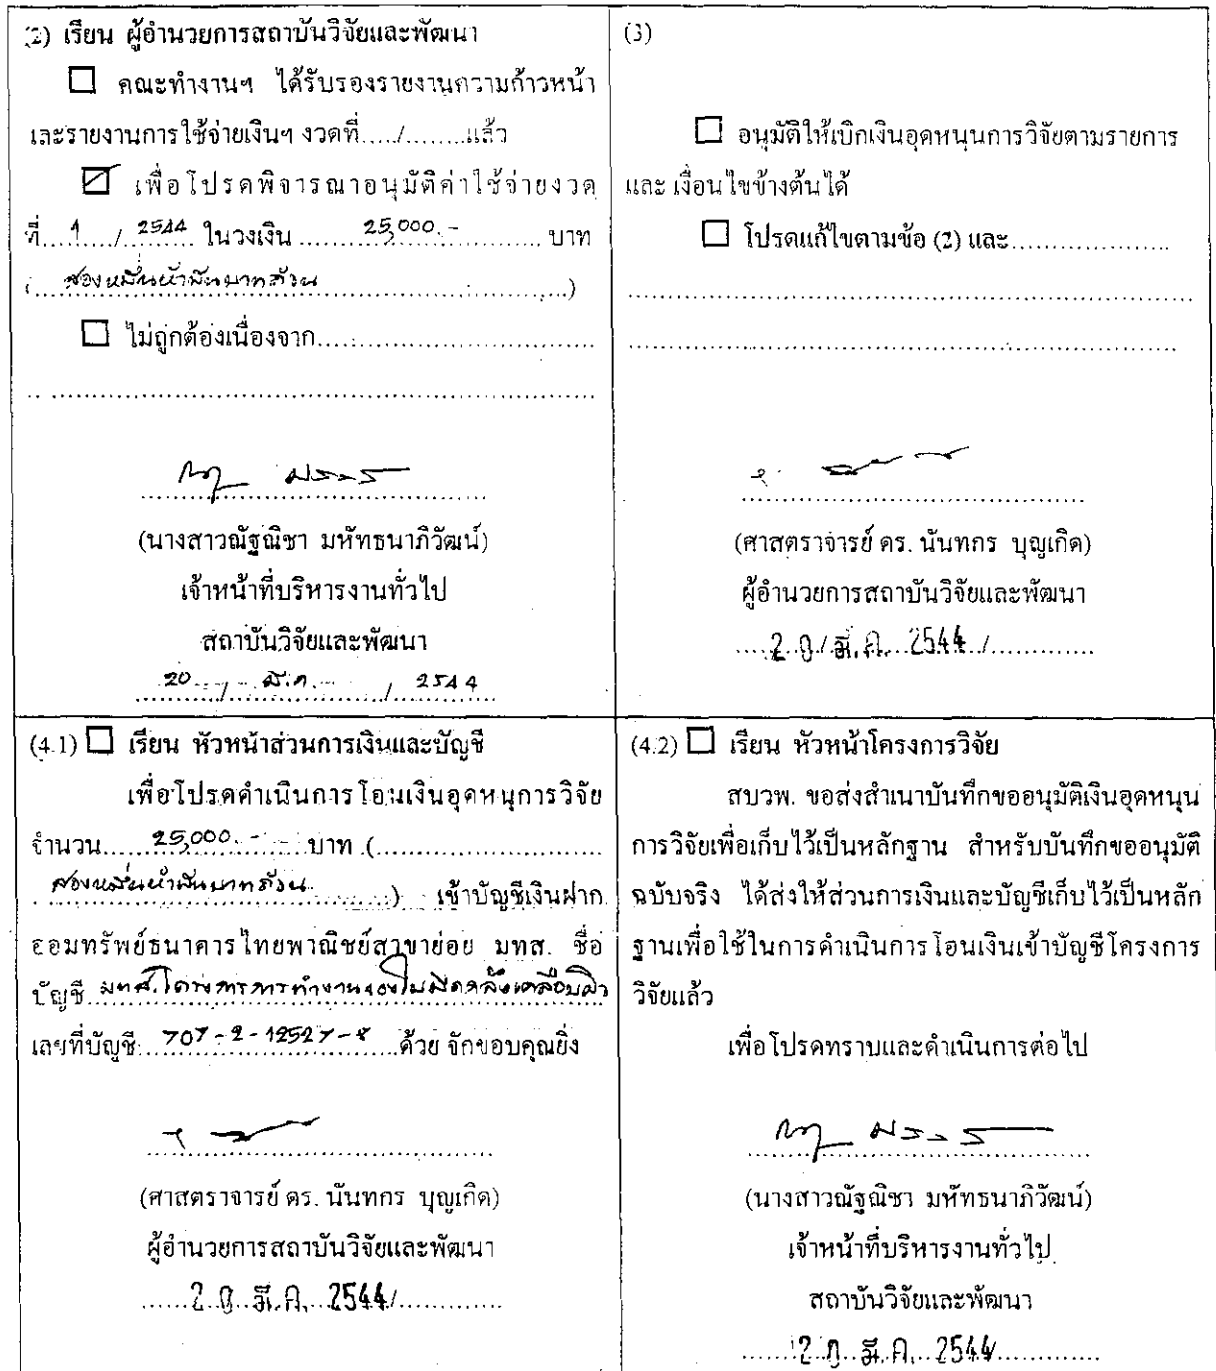 (2) เรียน ผู้อำนวยการสถาบันวิจัยและพัฒนา
☐ คณะทำงานฯ ได้รับรองรายงานความก้าวหน้า
และรายงานการใช้จ่ายเงินฯ งวดที่...../.........แล้ว
☑ เพื่อโปรดพิจารณาอนุมัติค่าใช้จ่ายงวด
ที่....1..../..2544.. ในวงเงิน .........25,000.-............... บาท
(....สองหมื่นห้าพันบาทถ้วน.............................)
☐ ไม่ถูกต้องเนื่องจาก.......................................
.......................................................................
(นางสาวณัฐณิชา มหัทธนาภิวัฒน์)
เจ้าหน้าที่บริหารงานทั่วไป
สถาบันวิจัยและพัฒนา
....20..../....มี.ค......../..2544...
(3)
☐ อนุมัติให้เบิกเงินอุดหนุนการวิจัยตามรายการ
และ เงื่อนไขข้างต้นได้
☐ โปรดแก้ไขตามข้อ (2) และ....................
.......................................................................
.......................................................................
(ศาสตราจารย์ ดร. นันทกร บุญเกิด)
ผู้อำนวยการสถาบันวิจัยและพัฒนา
.....20./ มี.ค. 2544./.............
(4.1) ☐ เรียน หัวหน้าส่วนการเงินและบัญชี
เพื่อโปรดดำเนินการโอนเงินอุดหนุการวิจัย
จำนวน......25,000.-......บาท (.........................
..สองหมื่นห้าพันบาทถ้วน............) เข้าบัญชีเงินฝาก
ออมทรัพย์ธนาคารไทยพาณิชย์สาขาย่อย มทส. ชื่อ
บัญชี..มทส.โครงการการทำงานของใบมีดกลึงเคลือบผิว
เลขที่บัญชี...707-2-12527-8......ด้วย จักขอบคุณยิ่ง
(ศาสตราจารย์ ดร. นันทกร บุญเกิด)
ผู้อำนวยการสถาบันวิจัยและพัฒนา
......20 มี.ค. 2544/.............
(4.2) ☐ เรียน หัวหน้าโครงการวิจัย
สบวพ. ขอส่งสำเนาบันทึกขออนุมัติเงินอุดหนุน
การวิจัยเพื่อเก็บไว้เป็นหลักฐาน สำหรับบันทึกขออนุมัติ
ฉบับจริง ได้ส่งให้ส่วนการเงินและบัญชีเก็บไว้เป็นหลัก
ฐานเพื่อใช้ในการดำเนินการโอนเงินเข้าบัญชีโครงการ
วิจัยแล้ว
เพื่อโปรดทราบและดำเนินการต่อไป
(นางสาวณัฐณิชา มหัทธนาภิวัฒน์)
เจ้าหน้าที่บริหารงานทั่วไป
สถาบันวิจัยและพัฒนา
......20 มี.ค. 2544.............